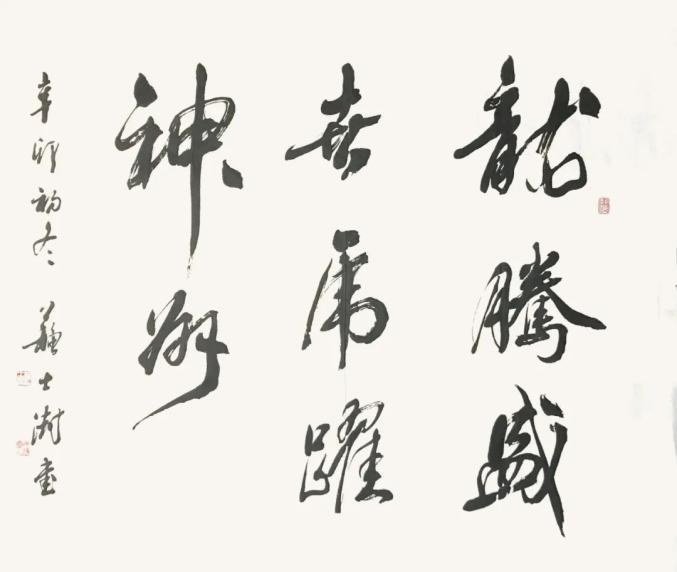 龍騰盛
世虎躍
神州
辛丑初冬 蘇士澍書